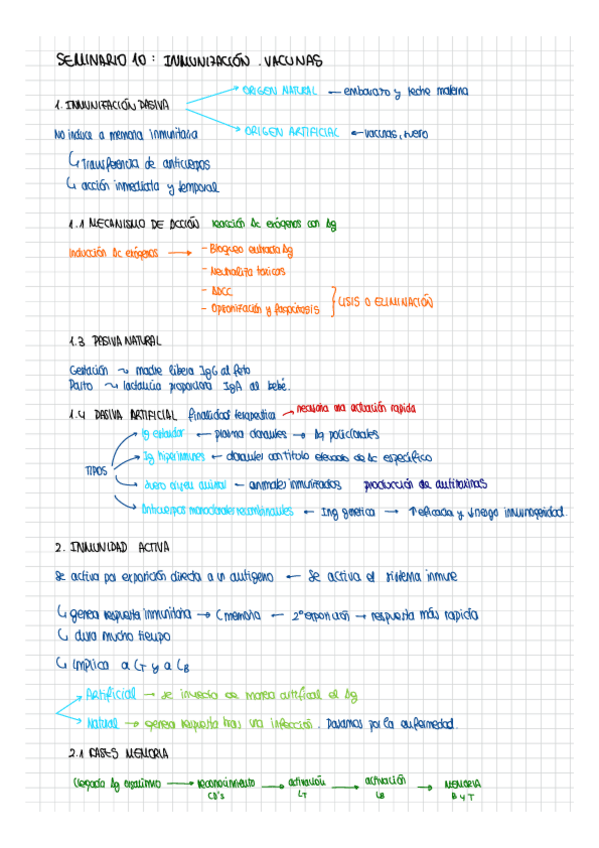 SEMINARIO 10: INMUNIZACIÓN. VACUNAS
ORIGEN NATURAL ← embarazo y leche materna
1. INMUNIZACIÓN PASIVA
No induce a memoria inmunitaria
ORIGEN ARTIFICIAL ← vacunas, suero
↳ Transferencia de anticuerpos
↳ acción inmediata y temporal
1.1 MECANISMO DE ACCIÓN reacción Ac exógenos con Ag
Inducción Ac exógenos → - Bloqueo entrada Ag
- Neutraliza toxicos
- ADCC
- Opsonización y fagocitosis
LISIS O ELIMINACIÓN
1.3 PASIVA NATURAL
Gestación ↝ madre libera IgG al feto
Parto ↝ lactancia proporciona IgA al bebé.
1.4 PASIVA ARTIFICIAL finalidad terapeutica → necesaria una actuación rapida
Ig estandar ← plasma donantes → Ag policlonales
Ig hiperinmunes ← donantes con titulo elevado de Ac específico
TIPOS
Suero origen animal ← animales inmunizados producción de antitoxinas
Anticuerpos monoclonales recombinantes ← Ing genetica → ↑ eficacia y ↓ riesgo inmunogenicidad.
2. INMUNIDAD ACTIVA
Se activa por exposición directa a un antigeno ← Se activa el sistema inmune
↳ genera respuesta inmunitaria → C memoria ← 2º exposición → respuesta más rapida
↳ dura mucho tiempo
↳ Implica a LT y a LB
Artificial → se inyecta de manera artificial el Ag
Natural → genera respuesta tras una infección. Pasamos por la enfermedad.
2.1 FASES MEMORIA
Llegada Ag organismo → reconocimiento → activación → activación → MEMORIA
CD's LT LB B y T